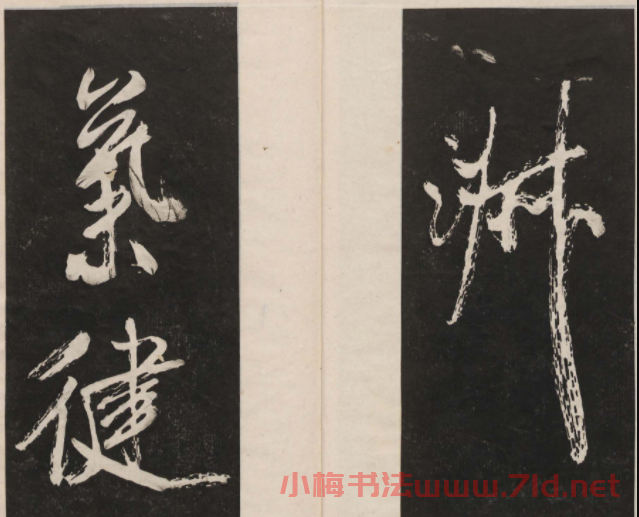 淋
氣健
小梅书法www.7ld.net